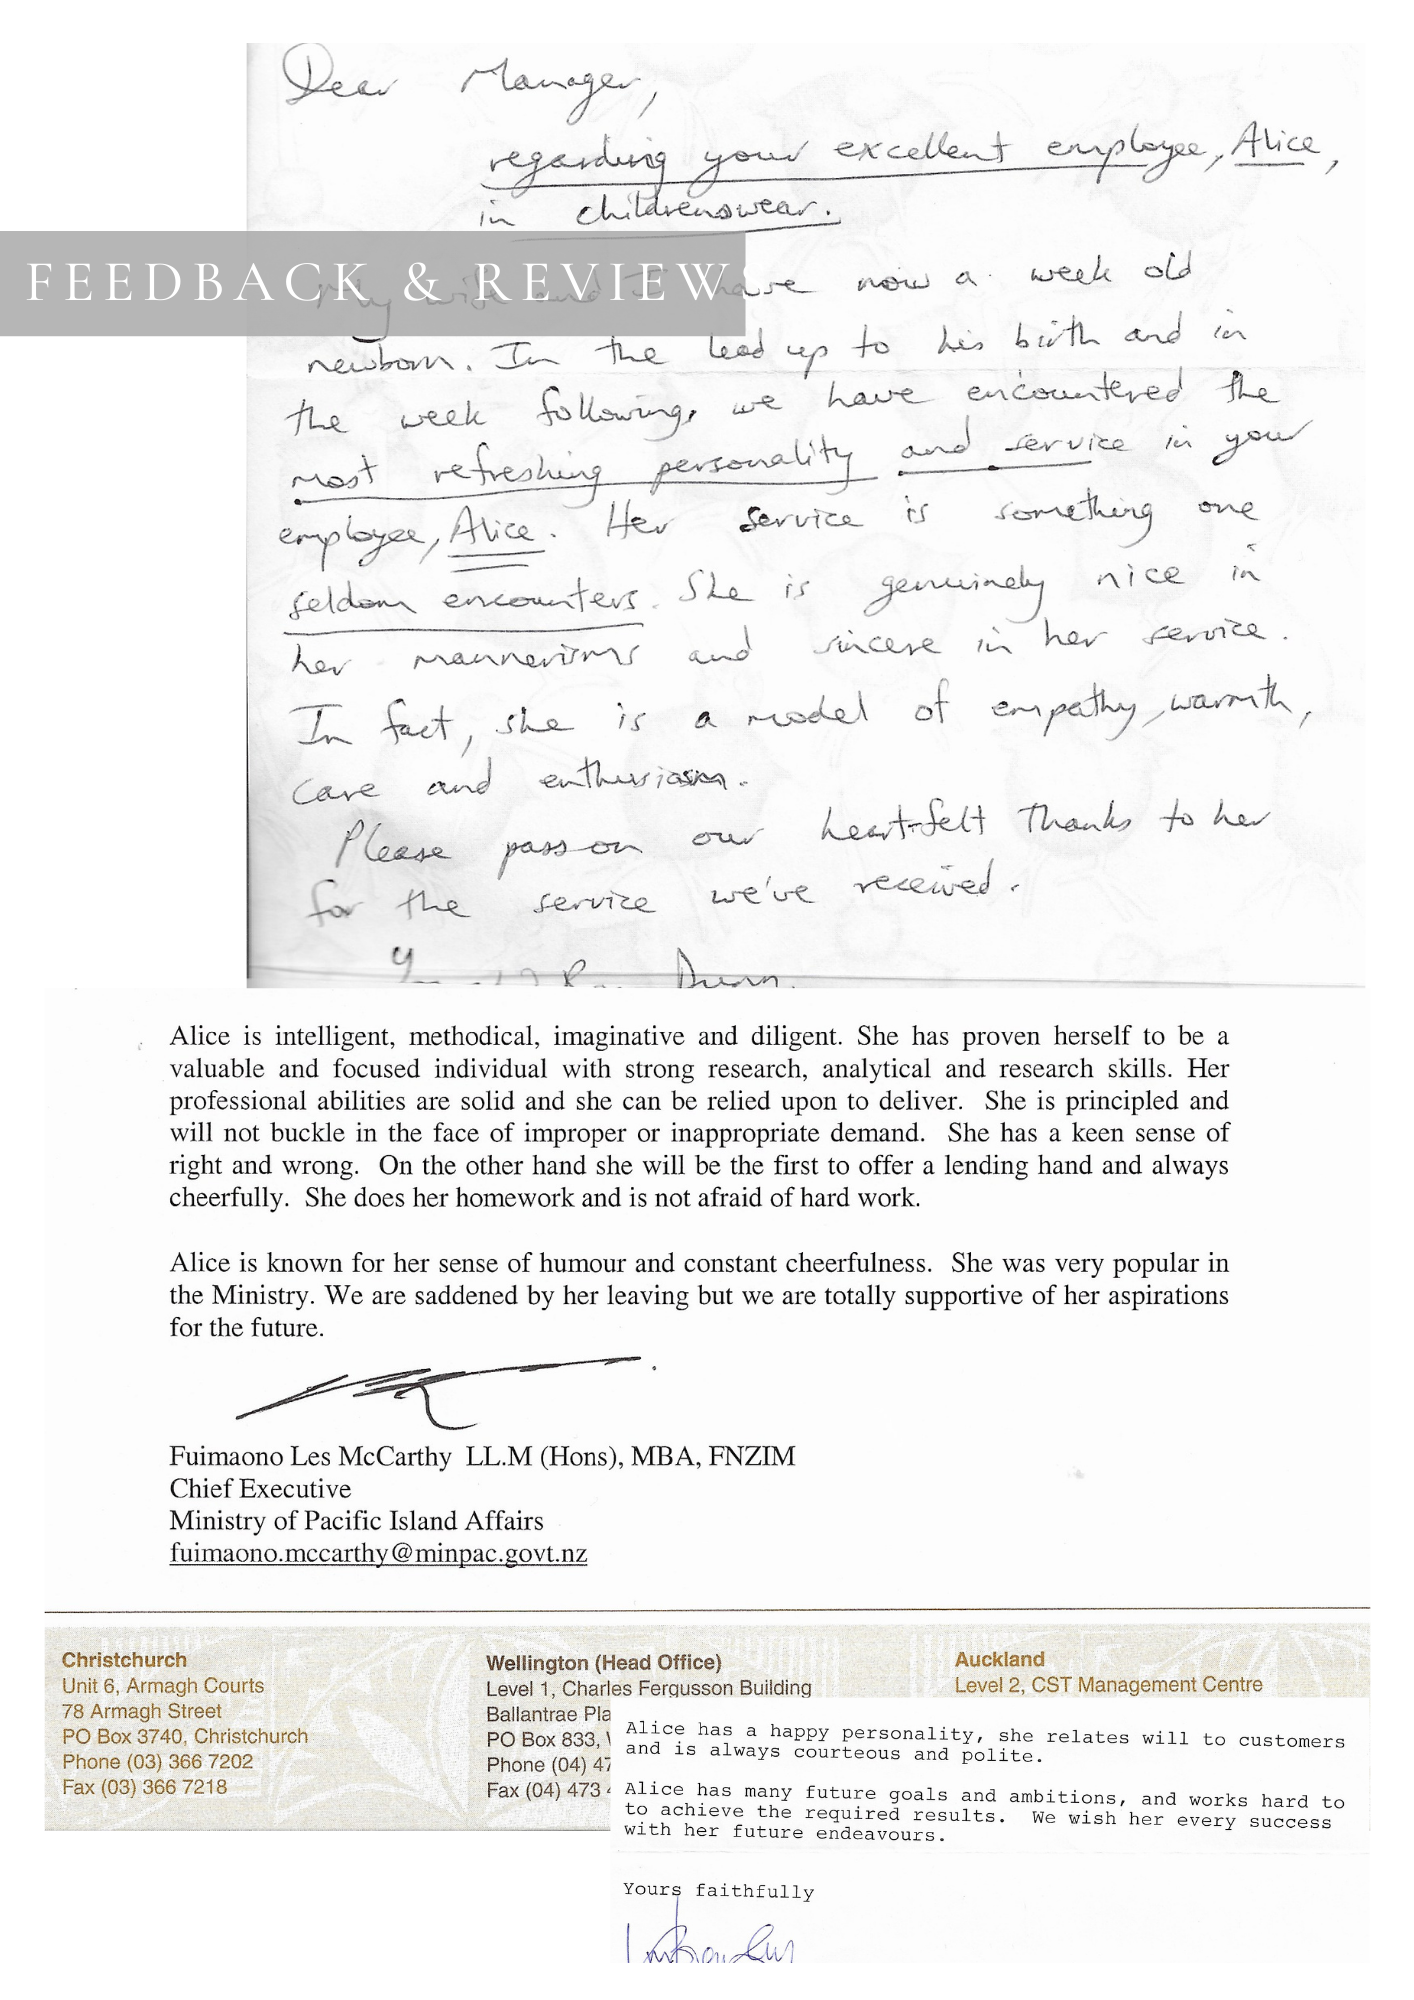 Dear Manager,
regarding your excellent employee, Alice,
in childrenswear.
FEEDBACK & REVIEWS
My wife and I have now a week old
newborn. In the lead up to his birth and in
the week following, we have encountered the
most refreshing personality and service in your
employee, Alice. Her service is something one
seldom encounters. She is genuinely nice in
her mannerisms and sincere in her service.
In fact, she is a model of empathy, warmth,
care and enthusiasm.
Please pass on our heart-felt thanks to her
for the service we've received.
Dunn.
Alice is intelligent, methodical, imaginative and diligent. She has proven herself to be a
valuable and focused individual with strong research, analytical and research skills. Her
professional abilities are solid and she can be relied upon to deliver. She is principled and
will not buckle in the face of improper or inappropriate demand. She has a keen sense of
right and wrong. On the other hand she will be the first to offer a lending hand and always
cheerfully. She does her homework and is not afraid of hard work.
Alice is known for her sense of humour and constant cheerfulness. She was very popular in
the Ministry. We are saddened by her leaving but we are totally supportive of her aspirations
for the future.
Fuimaono Les McCarthy LL.M (Hons), MBA, FNZIM
Chief Executive
Ministry of Pacific Island Affairs
fuimaono.mccarthy@minpac.govt.nz
Christchurch
Unit 6, Armagh Courts
78 Armagh Street
PO Box 3740, Christchurch
Phone (03) 366 7202
Fax (03) 366 7218
Wellington (Head Office)
Level 1, Charles Fergusson Building
Ballantrae Pla
PO Box 833,
Phone (04) 47
Fax (04) 473
Auckland
Level 2, CST Management Centre
Alice has a happy personality, she relates will to customers
and is always courteous and polite.
Alice has many future goals and ambitions, and works hard to
to achieve the required results. We wish her every success
with her future endeavours.
Yours faithfully